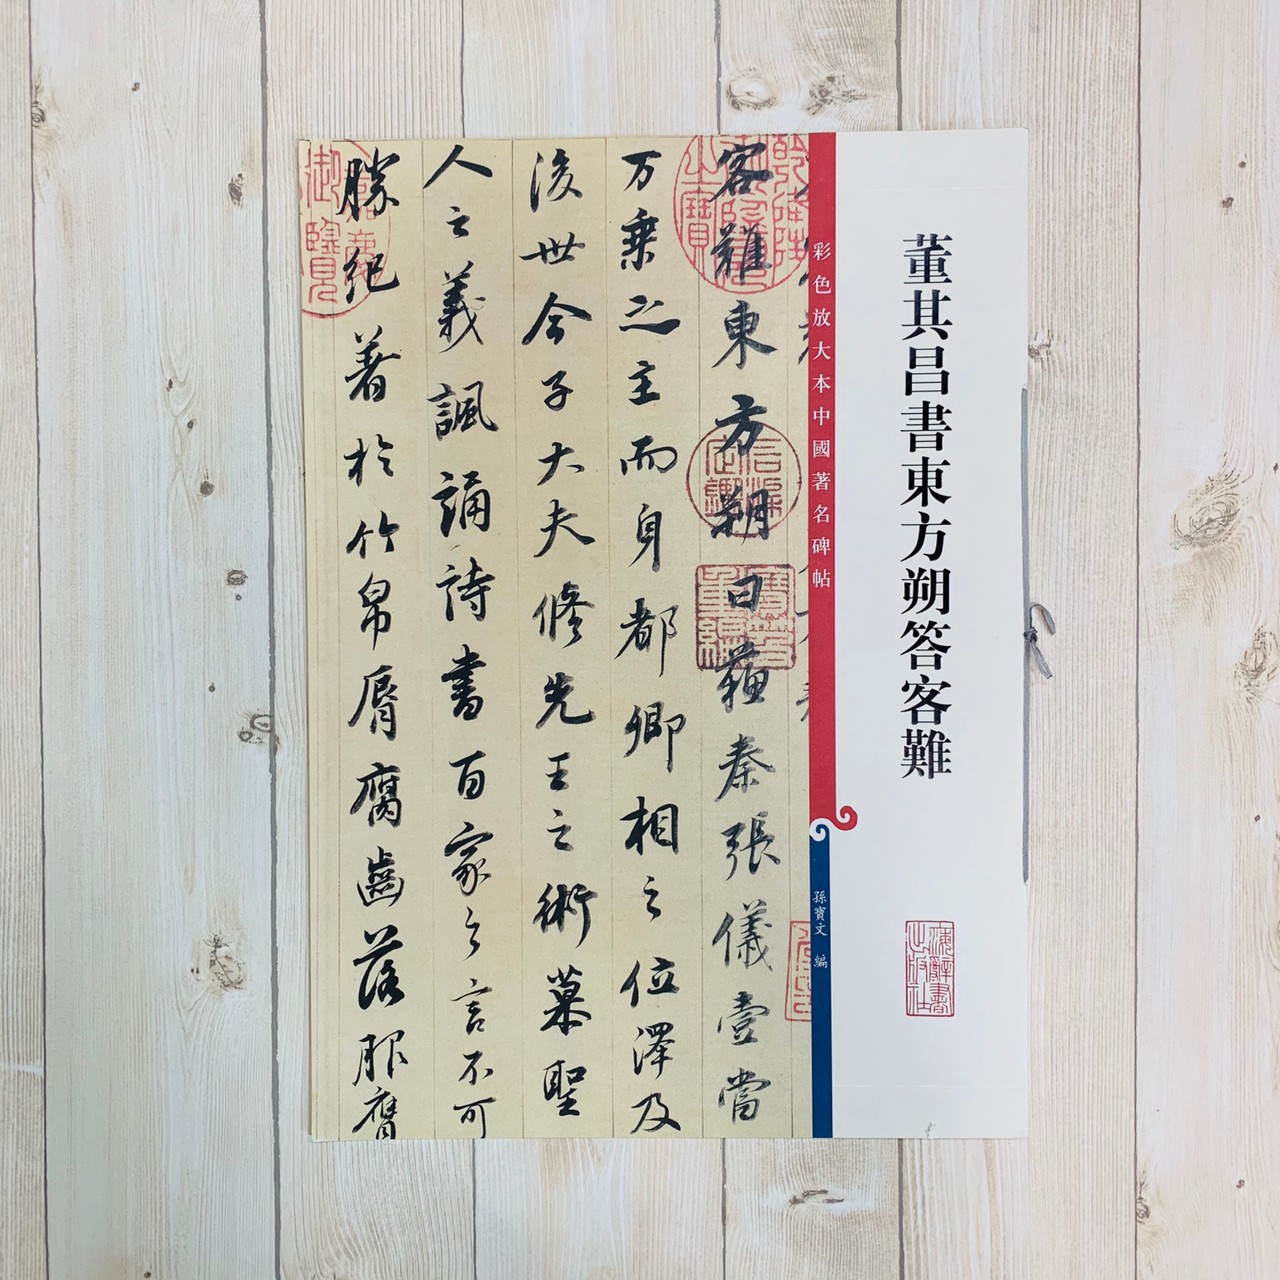 董其昌書東方朔答客難
彩色放大本中國著名碑帖
孫寶文 編
海辭書出版社
客難東方朔曰蘇秦張儀壹當
万乘之主而身都卿相之位澤及
後世今子大夫修先王之術慕聖
人之義諷誦詩書百家之言不可
勝紀著於竹帛脣腐齒落服膺